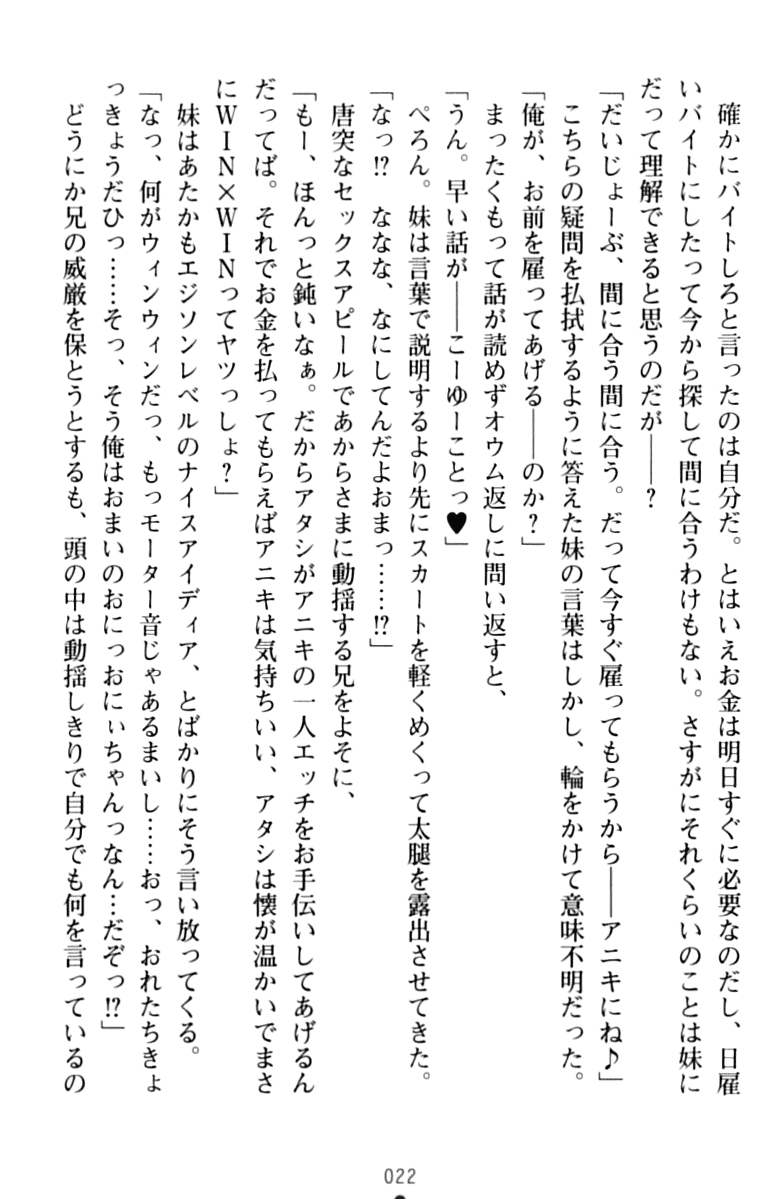 確かにバイトしろと言ったのは自分だ。とはいえお金は明日すぐに必要なのだし、日雇
いバイトにしたって今から探して間に合うわけもない。さすがにそれくらいのことは妹に
だって理解できると思うのだが――？
「だいじょーぶ、間に合う間に合う。だって今すぐ雇ってもらうから――アニキにね♪」
こちらの疑問を払拭するように答えた妹の言葉はしかし、輪をかけて意味不明だった。
「俺が、お前を雇ってあげる――のか？」
まったくもって話が読めずオウム返しに問い返すと、
「うん。早い話が――こーゆーことっ♥」
ぺろん。妹は言葉で説明するより先にスカートを軽くめくって太腿を露出させてきた。
「なっ!?　ななな、なにしてんだよおまっ……!?」
唐突なセックスアピールであからさまに動揺する兄をよそに、
「もー、ほんっと鈍いなぁ。だからアタシがアニキの一人エッチをお手伝いしてあげるん
だってば。それでお金を払ってもらえばアニキは気持ちいい、アタシは懐が温かいでまさ
にＷＩＮ×ＷＩＮってヤツっしょ？」
妹はあたかもエジソンレベルのナイスアイディア、とばかりにそう言い放ってくる。
「なっ、何がウィンウィンだっ、もっモーター音じゃあるまいし……おっ、おれたちきょ
っきょうだひっ……そっ、そう俺はおまいのおにっおにぃちゃんっなん…だぞっ!?」
どうにか兄の威厳を保とうとするも、頭の中は動揺しきりで自分でも何を言っているの
022